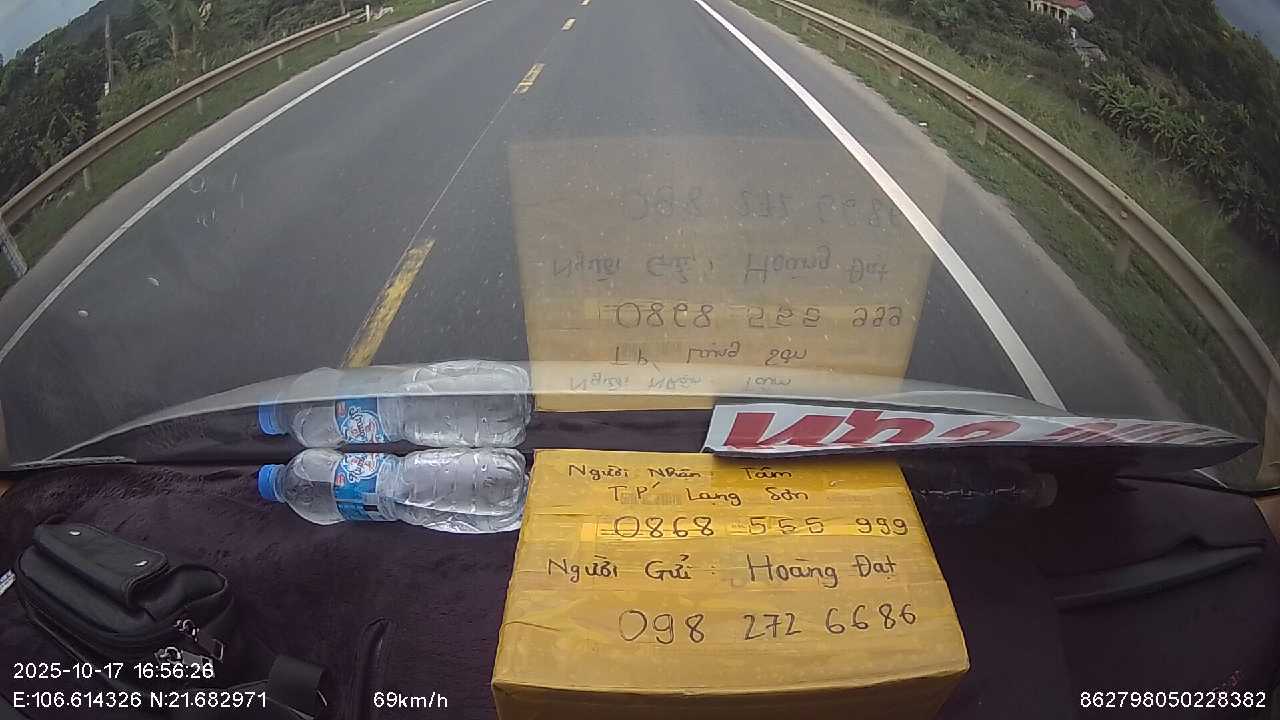 Người Nhận : Tâm
T.P' Lạng Sơn
0868 555 999
Người Gửi : Hoàng Đạt
098 272 6686
2025-10-17 16:56:28
E:106.614326 N:21.682971
69km/h
862798050228382